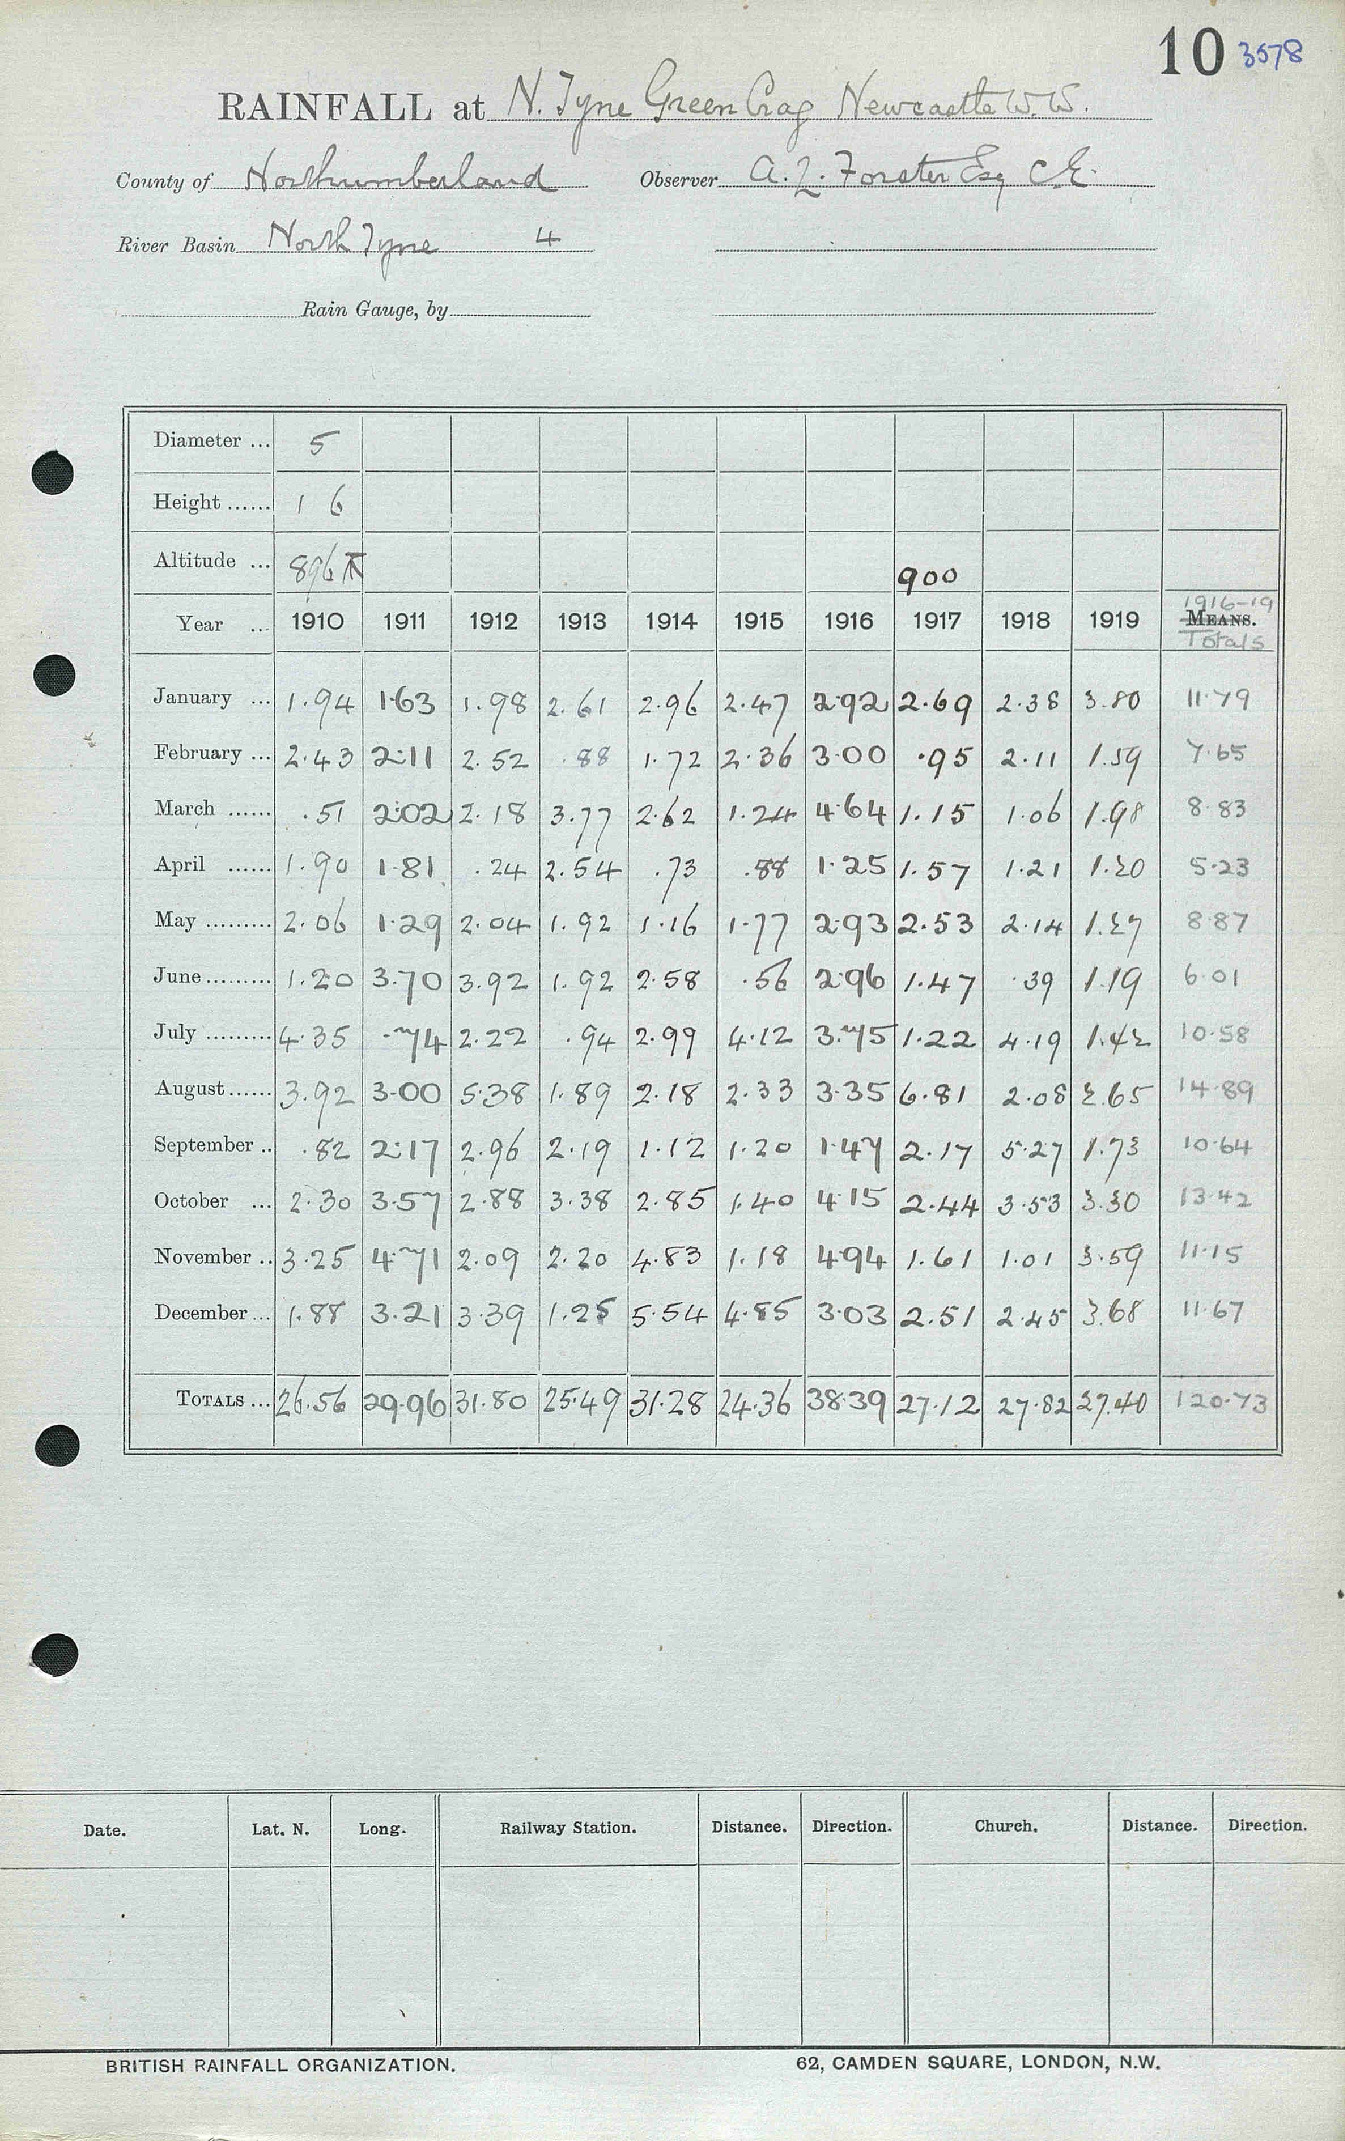 10 3578
RAINFALL at N. Tyne Green Crag Newcastle W.W.
County of Northumberland Observer A. L. Forster Esq C.E.
River Basin North Tyne 4
Rain Gauge, by
Diameter ... 5
Height ...... 1 6
Altitude ... 896 T 900
1916-19
Year ... 1910 1911 1912 1913 1914 1915 1916 1917 1918 1919 MEANS.
Totals
January ... 1.94 1.63 1.98 2.61 2.96 2.47 2.92 2.69 2.38 3.80 11.79
February ... 2.43 2.11 2.52 .88 1.72 2.36 3.00 .95 2.11 1.59 7.65
March ...... .51 2.02 2.18 3.77 2.62 1.24 4.64 1.15 1.06 1.98 8.83
April ...... 1.90 1.81 .24 2.54 .73 .88 1.25 1.57 1.21 1.20 5.23
May ......... 2.06 1.29 2.04 1.92 1.16 1.77 2.93 2.53 2.14 1.27 8.87
June ......... 1.20 3.70 3.92 1.92 2.58 .56 2.96 1.47 .39 1.19 6.01
July ......... 4.35 .74 2.22 .94 2.99 4.12 3.75 1.22 4.19 1.42 10.58
August ...... 3.92 3.00 5.38 1.89 2.18 2.33 3.35 6.81 2.08 2.65 14.89
September .. .82 2.17 2.96 2.19 1.12 1.20 1.47 2.17 5.27 1.73 10.64
October ... 2.30 3.57 2.88 3.38 2.85 1.40 4.15 2.44 3.53 3.30 13.42
November .. 3.25 4.71 2.09 2.20 4.83 1.18 4.94 1.61 1.01 3.59 11.15
December ... 1.88 3.21 3.39 1.25 5.54 4.85 3.03 2.51 2.45 3.68 11.67
TOTALS ... 26.56 29.96 31.80 25.49 31.28 24.36 38.39 27.12 27.82 27.40 120.73
Date. Lat. N. Long. Railway Station. Distance. Direction. Church. Distance. Direction.
BRITISH RAINFALL ORGANIZATION. 62, CAMDEN SQUARE, LONDON, N.W.